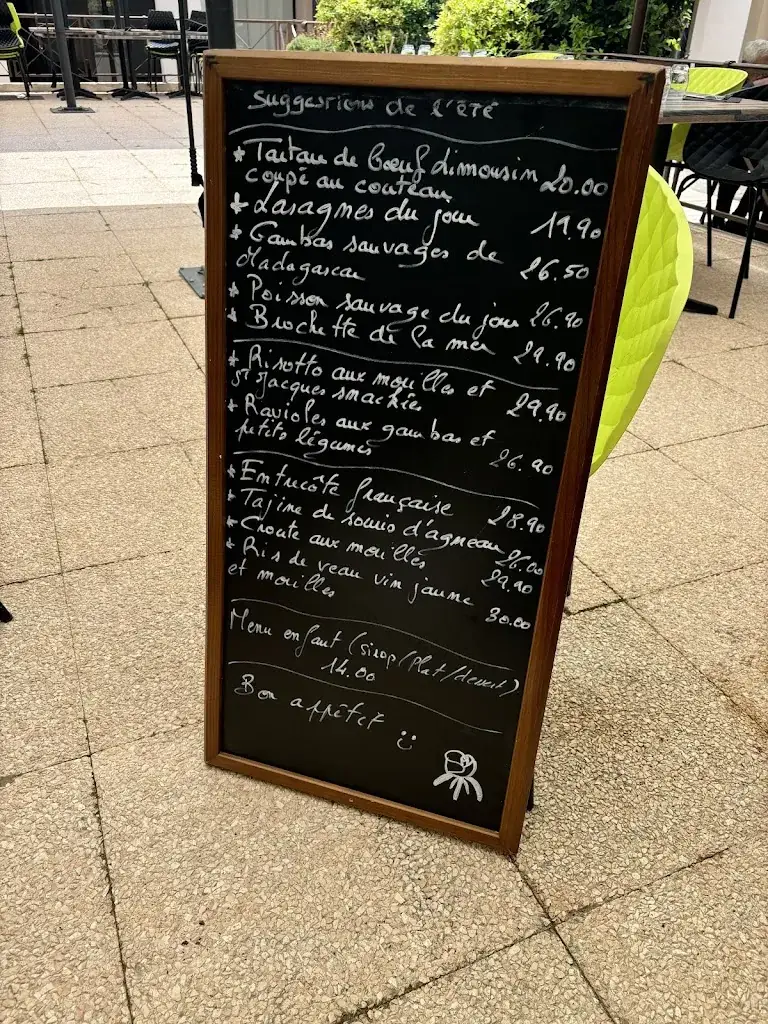 Suggestions de l'été
* Tartare de bœuf limousin 20.00
coupé au couteau
* Lasagnes du jour 19.90
* Gambas sauvages de 26.50
Madagascar
* Poisson sauvage du jour 26.90
* Brochette de la mer 29.90
* Risotto aux morilles et 29.90
St Jacques snackées
* Ravioles aux gambas et 26.90
petits légumes
* Entrecôte française 28.90
* Tajine de souris d'agneau 26.00
* Croute aux morilles 29.90
* Ris de veau vin jaune 30.00
et morilles
Menu enfant (sirop/plat/dessert)
14.00
Bon appétit